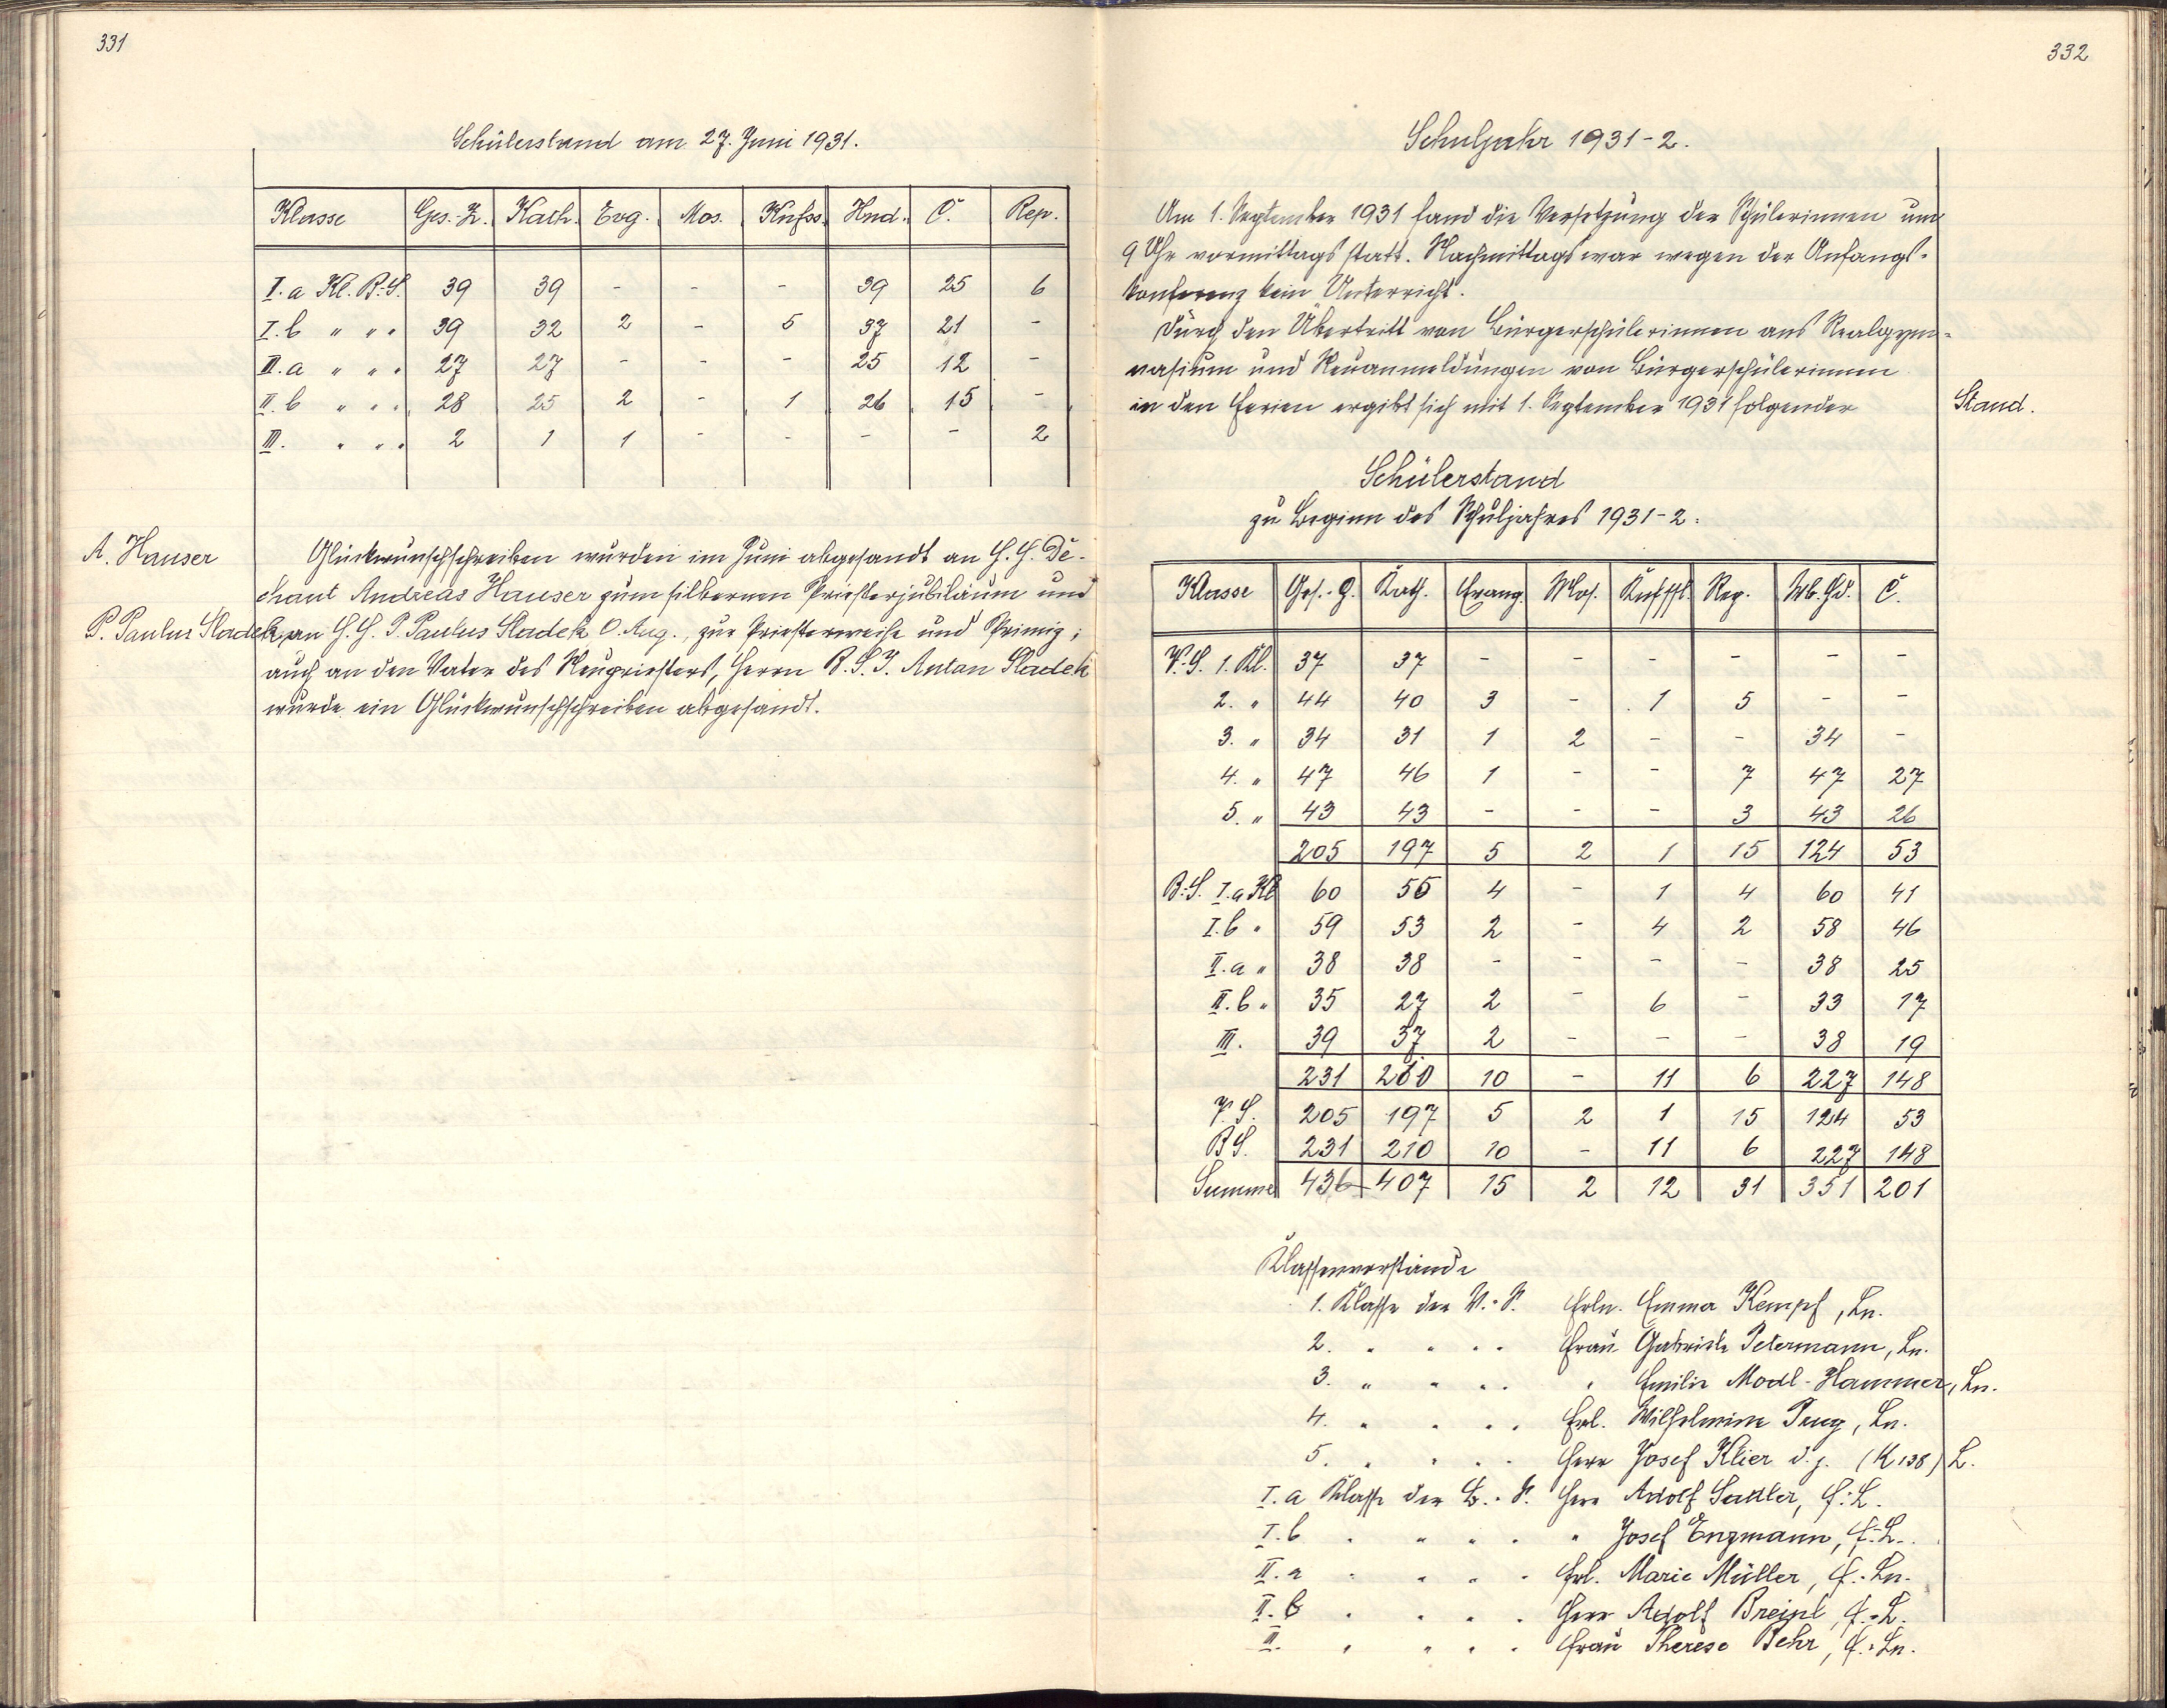 331
Schülerstand am 27. Juni 1931.
Klasse Ges.-Z. Kath. Evg. Mos. Knfss. Hnd. Č. Rep.
I. a Kl. B.-S. 39 39 - - - 39 25 6
I. b " " " 39 32 2 - 5 37 21 -
II. a " " " 27 27 - - - 25 12 -
II. b " " " 28 25 2 - 1 26 15 -
III. " " " 2 1 1 - - - - 2
A. Hauser
Glückwunschschreiben wurden im Juni abgesandt an H. H. De-
chant Andreas Hauser zum silbernen Priesterjubiläum und
P. Paulus Sladek
an H. H. P. Paulus Sladek O. Aug., zur Priesterweihe und Primiz;
auch an den Vater des Neupriesters, Herrn B. S. I. Anton Sladek
wurde ein Glückwunschschreiben abgesandt.
332
Schuljahr 1931-2.
Am 1. September 1931 fand die Versetzung der Schülerinnen um
9 Uhr vormittags statt. Nachmittags war wegen der Anfangs-
konferenz kein Unterricht.
Durch den Übertritt von Bürgerschülerinnen ans Realgym-
nasium und Neuanmeldungen von Bürgerschülerinnen
in den Ferien ergibt sich mit 1. September 1931 folgender Stand.
Schülerstand
zu Beginn des Schuljahres 1931-2:
Klasse Ges.-Z. Kath. Evang. Mos. Knfssl. Rep. Wb. Hd. Č.
V.-S. 1. Kl. 37 37 - - - - - -
2. " 44 40 3 - 1 5 - -
3. " 34 31 1 2 - - 34 -
4. " 47 46 1 - - 7 47 27
5. " 43 43 - - - 3 43 26
205 197 5 2 1 15 124 53
B.-S. I. a Kl 60 55 4 - 1 4 60 41
I. b " 59 53 2 - 4 2 58 46
II. a " 38 38 - - - - 38 25
II. b " 35 27 2 - 6 - 33 17
III. 39 37 2 - - - 38 19
231 210 10 - 11 6 227 148
V. S. 205 197 5 2 1 15 124 53
B S. 231 210 10 - 11 6 227 148
Summe 436 407 15 2 12 31 351 201
Klassenvorstände
1. Klasse der V.-S. Frln. Emma Kempf, Ln.
2. " " " " Frau Gabriele Petermann, Ln.
3. " " " " " Emilie Modl-Hammer, Ln.
4. " " " " Frl. Wilhelmine Pung, Ln.
5. " " " " Herr Josef Klier d. j. (K 138) L.
I. a Klasse der B.-S. Herr Adolf Sadler, F.-L.
I. b " " " " " Josef Enzmann, F.-L.
II. a " " " " Frl. Marie Müller, F.-Ln.
II. b " " " " Herr Adolf Breinl, F.-L.
III. " " " " Frau Therese Behr, F.-Ln.